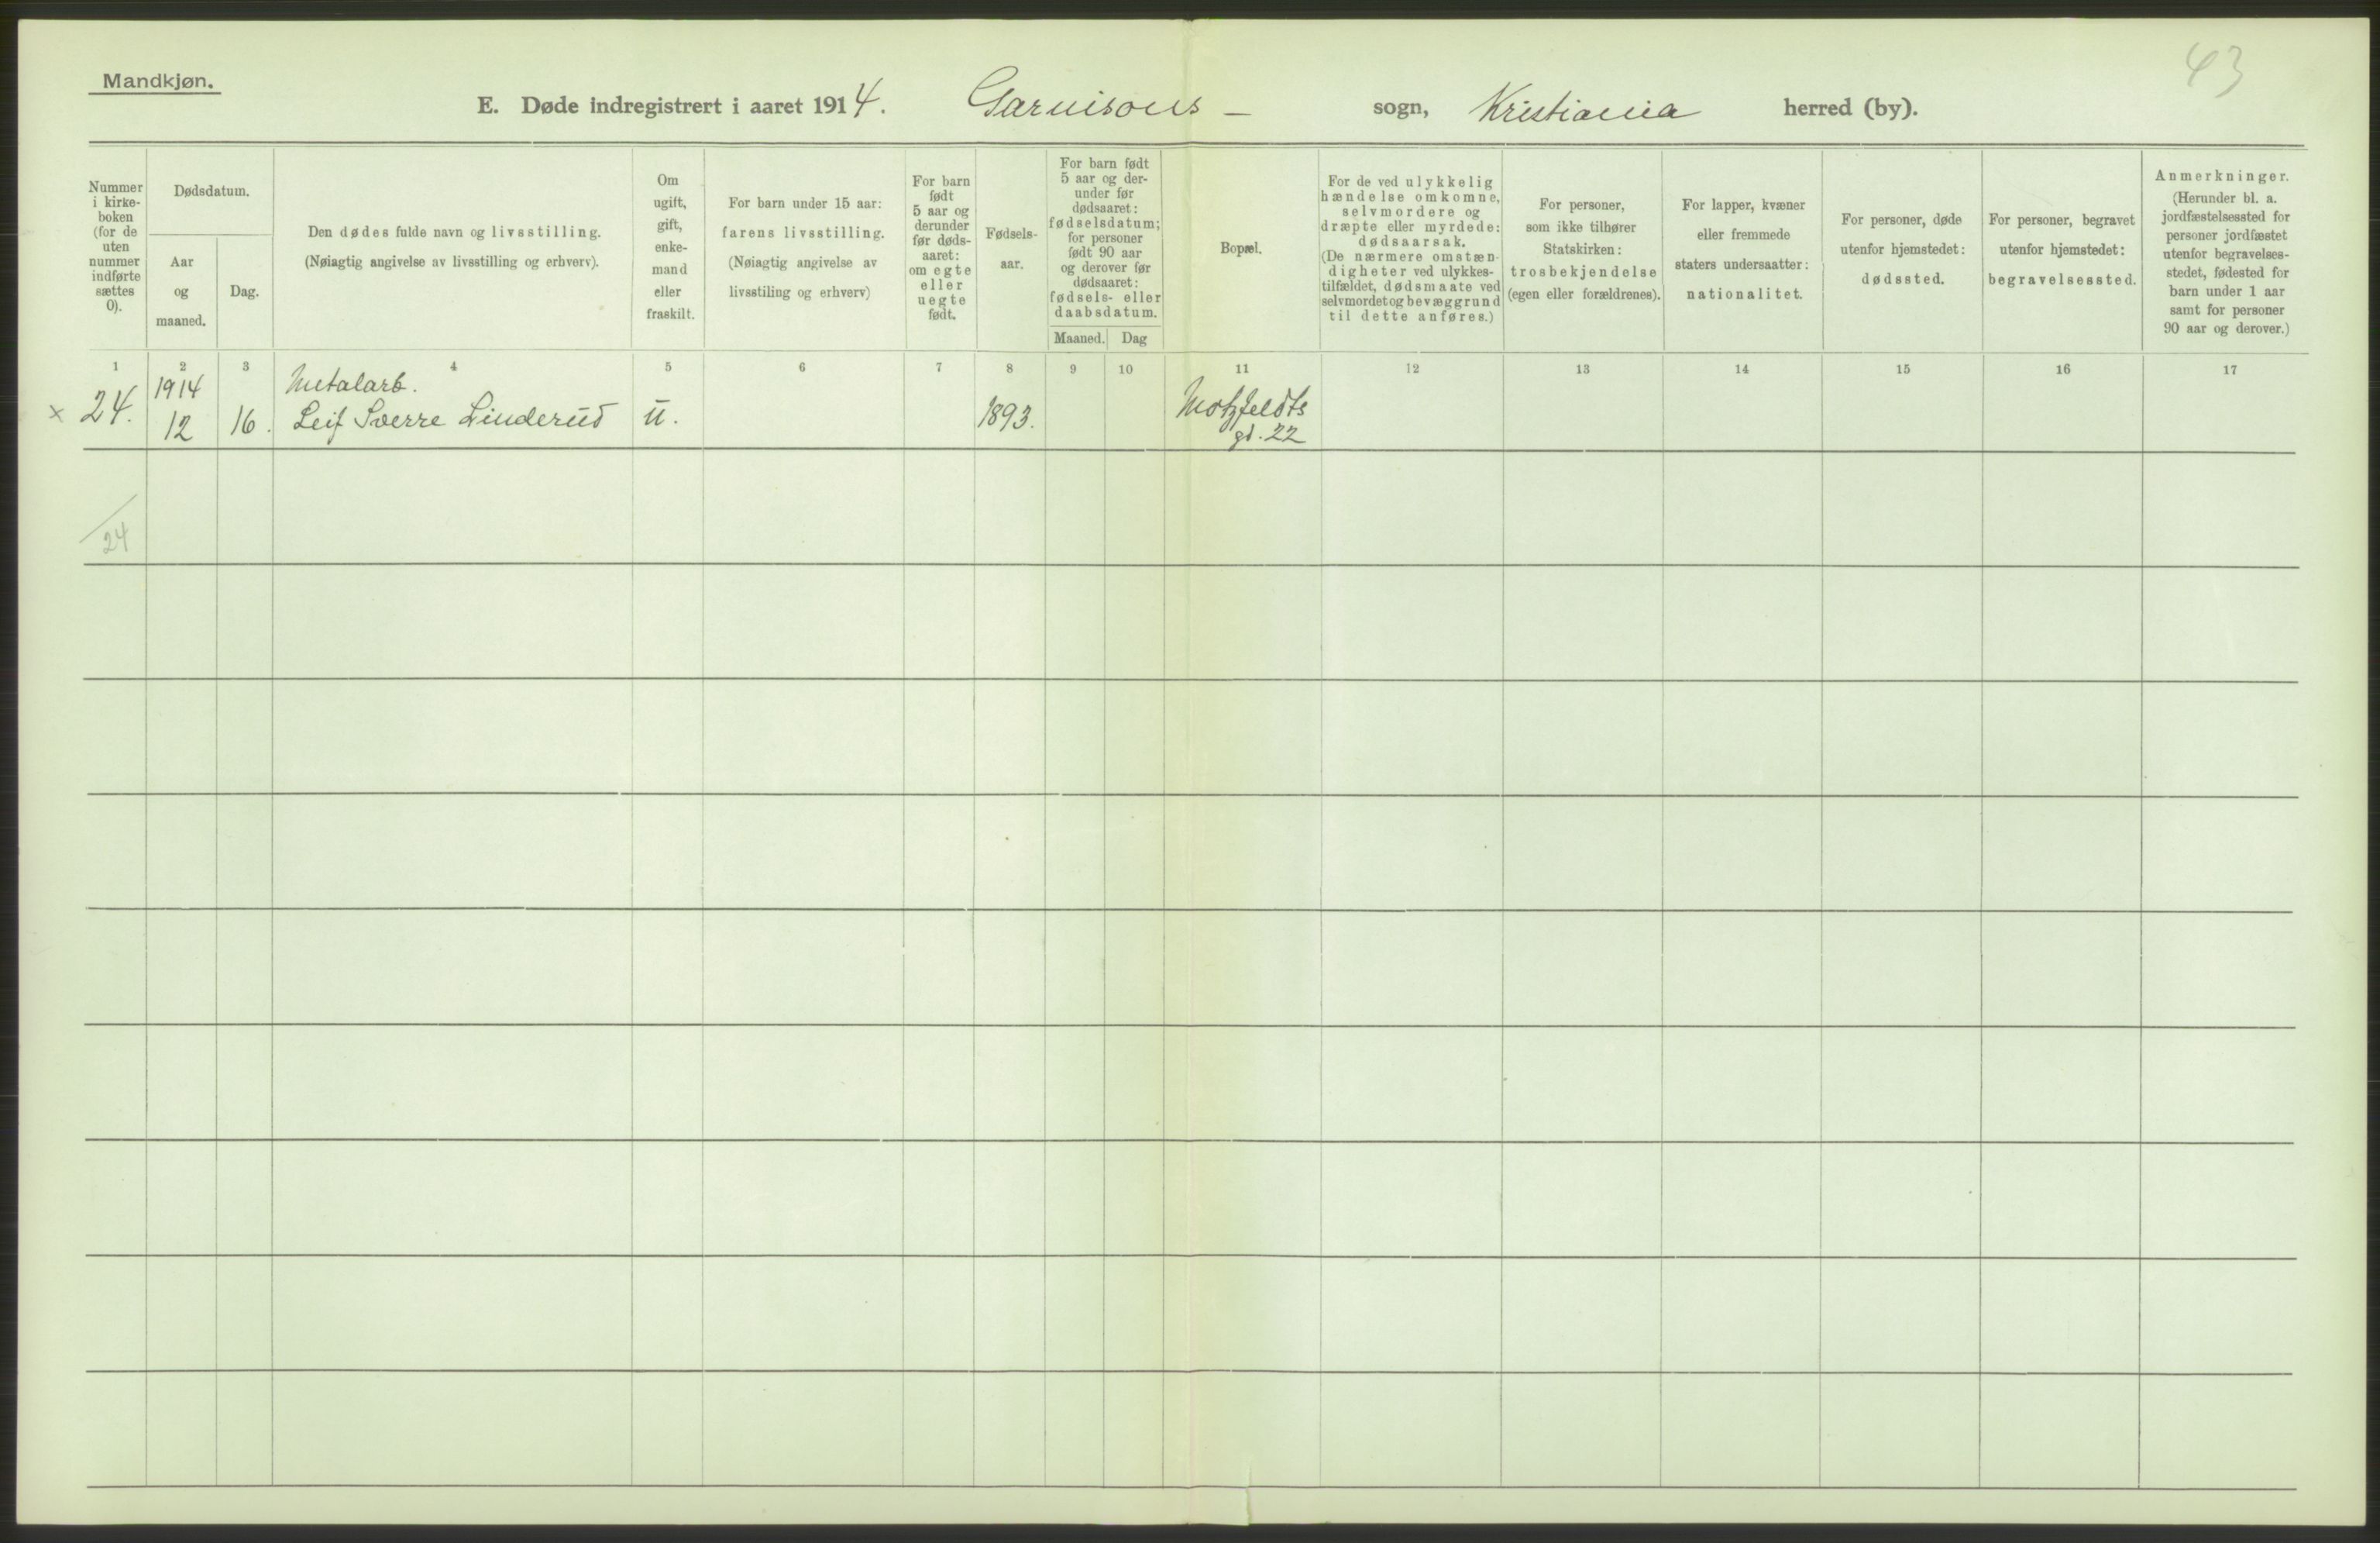 43
Mandkjøn.
E. Døde indregistrert i aaret 1914. Garnisons – sogn, Kristiania herred (by).
Nummer
i kirke-
boken
(for de
uten
nummer
indførte
sættes
0).
Dødsdatum.
Aar
og
maaned.
Dag.
Den dødes fulde navn og livsstilling.
(Nøiagtig angivelse av livsstilling og erhverv).
Om
ugift,
gift,
enke-
mand
eller
fraskilt.
For barn under 15 aar:
farens livsstilling.
(Nøiagtig angivelse av
livsstiling og erhverv)
For barn
født
5 aar og
derunder
før døds-
aaret:
om egte
eller
uegte
født.
Fødsels-
aar.
For barn født
5 aar og der-
under før
dødsaaret:
fødselsdatum;
for personer
født 90 aar
og derover før
dødsaaret:
fødsels- eller
daabsdatum.
Maaned. Dag
Bopæl.
For de ved ulykkelig
hændelse omkomne,
selvmordere og
dræpte eller myrdede:
dødsaarsak.
(De nærmere omstæn-
digheter ved ulykkes-
tilfældet, dødsmaate ved
selvmordet og bevæggrund
til dette anføres.)
For personer,
som ikke tilhører
Statskirken:
trosbekjendelse
(egen eller forældrenes).
For lapper, kvæner
eller fremmede
staters undersaatter:
nationalitet.
For personer, døde
utenfor hjemstedet:
dødssted.
For personer, begravet
utenfor hjemstedet:
begravelsessted.
Anmerkninger.
(Herunder bl. a.
jordfæstelsessted for
personer jordfæstet
utenfor begravelses-
stedet, fødested for
barn under 1 aar
samt for personer
90 aar og derover.)
1 2 3 4 5 6 7 8 9 10 11 12 13 14 15 16 17
1914 Metalarb. Motzfeldts
× 24. 12 16. Leif Sverre Linderud u. 1893. gt. 22
24